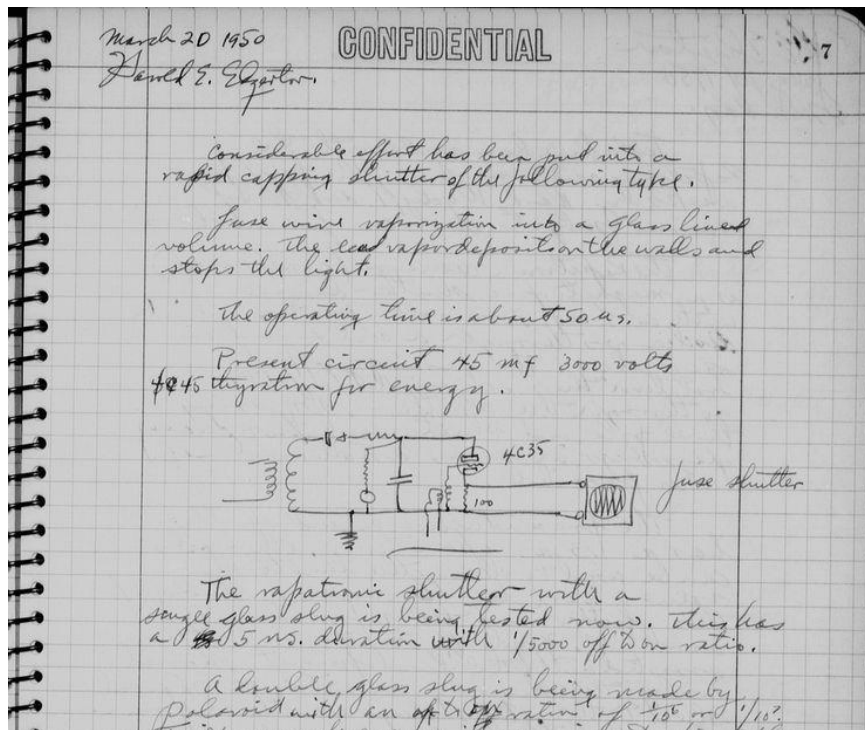 March 20 1950
CONFIDENTIAL
7
Harold E. Edgerton.
Considerable effort has been put into a
rapid capping shutter of the following type.
fuse wire vaporization into a glass lined
volume. The lead vapor deposits on the walls and
stops the light.
The operating time is about 50 us.
Present circuit 45 mf 3000 volts
thyratron for energy.
4C35
100
fuse shutter
The rapatronic shutter with a
single glass slug is being tested now. This has
a 5 us. duration with 1/5000 off to on ratio.
A double glass slug is being made by
Polaroid with an ratio of or